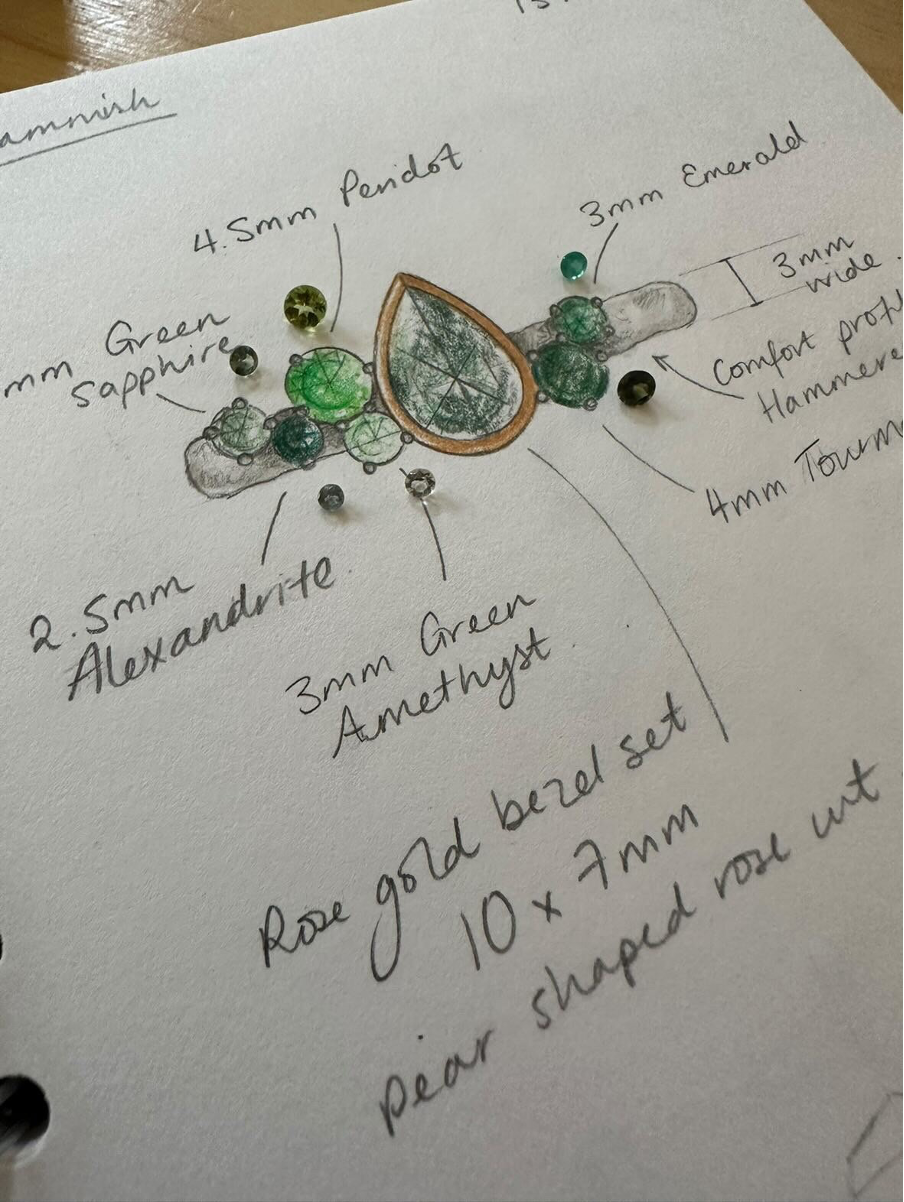 4.5mm Peridot
3mm Emerald
3mm
wide.
mm Green
sapphire
Comfort
4mm
2.5mm
Alexandrite.
3mm Green
Amethyst.
Rose gold bezel set
10 x 7mm
pear shaped rose cut